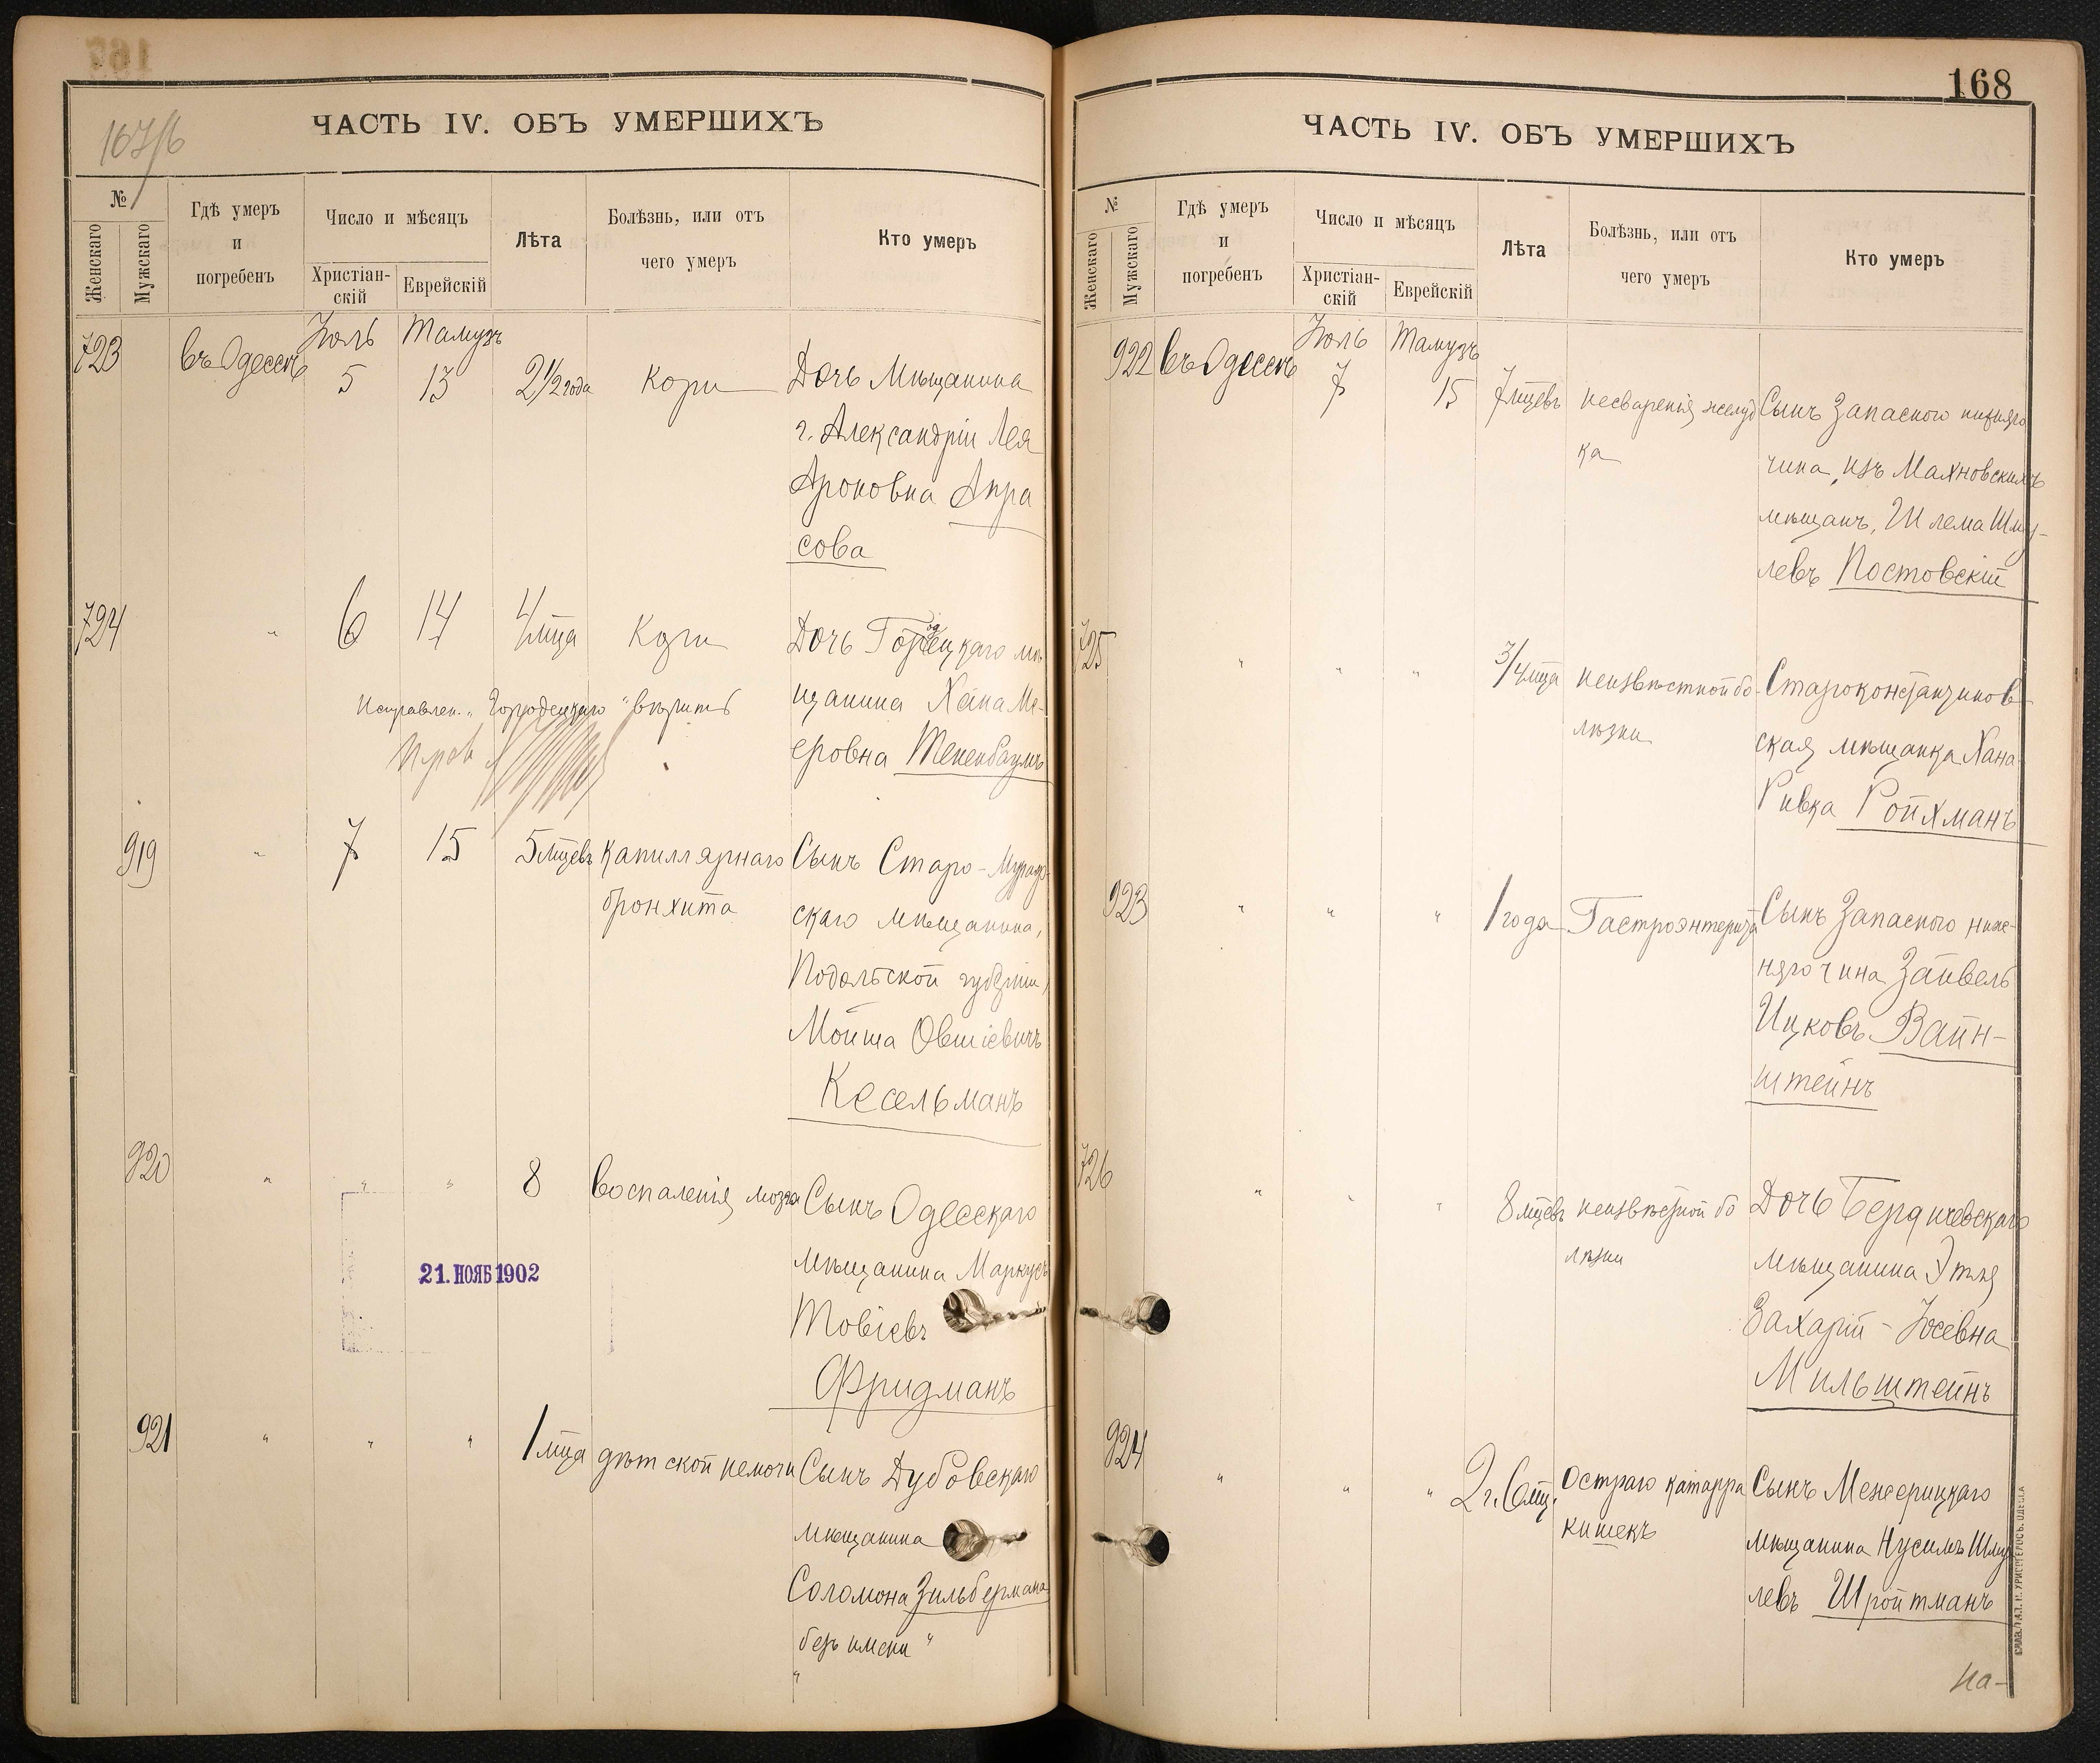 167/б
ЧАСТЬ IV. ОБЪ УМЕРШИХЪ
№
Женскаго
Мужскаго
Гдѣ умеръ
и
погребенъ
Число и мѣсяцъ
Христіан-
скій
Еврейскій
Лѣта
Болѣзнь, или отъ
чего умеръ
Кто умеръ
Іюль Тамузъ
723 въ Одессѣ 5 13 2½ года Кори Дочь Мѣщанина
г. Александріи Лея
Ароновна Апра
сова
724 " 6 14 4 мца Кори Дочь Горецкаго мѣ
щанина Хана Ме-
еровна Тененбаумъ
Исправлен. "Городецкаго" вѣрить
919 " 7 15 5 мцевъ капиллярнаго Сынъ Старо-
бронхита
скаго мѣщанина,
Подольской губерніи,
Мойша Овшіевичъ
Кесельманъ
920 " " " 8 воспаленія мозга Сынъ Одесскаго
мѣщанина Маркусъ
Товіевъ
Фридманъ
21. НОЯБ 1902
921 " " " 1 мца дѣтской немочи Сынъ Дубовскаго
мѣщанина
Соломона Зильбермана
безъ имени "
"
168
ЧАСТЬ IV. ОБЪ УМЕРШИХЪ
№
Женскаго
Мужскаго
Гдѣ умеръ
и
погребенъ
Число и мѣсяцъ
Христіан-
скій
Еврейскій
Лѣта
Болѣзнь, или отъ
чего умеръ
Кто умеръ
Іюль Тамузъ
922 въ Одессѣ 7 15 7 мцевъ несваренія желуд Сынъ Запасного нижняго
ка
чина, изъ Махновскихъ
мѣщанъ, Шлема Шму-
левъ Постовскій
725 " " " 3/4 мца неизвѣстной бо- Староконстантинов
лѣзни
ская мѣщанка Хана
Ривка Ройхманъ
923 " " " 1 года Гастроэнтерита Сынъ Запасного ниж-
няго чина Зайвель
Ицковъ Вайн-
штейнъ
726 " " " 8 мцевъ неизвѣстной бо Дочь Бердичевскаго
лѣзни
мѣщанина Этля
Захарій-Іосевна
Мильштейнъ
924 " " " 2 г. 6 мц. Остраго катарра Сынъ Межерицкаго
кишекъ
мѣщанина Нусимъ Шму
левъ Шройтманъ
на-